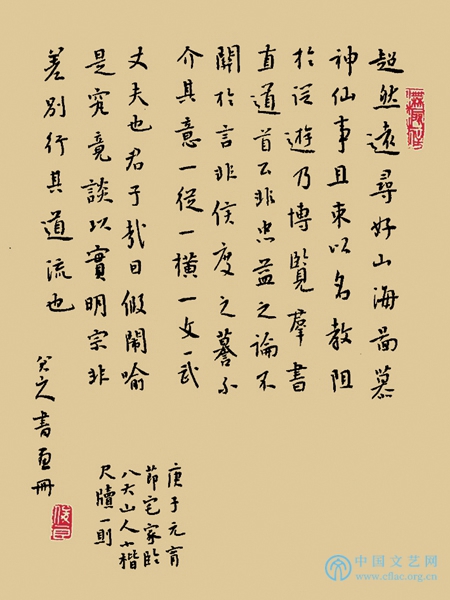 超然遠尋好山海啚慕
神仙事且束以名教阻
於從遊乃博覽羣書
直道首公非忠益之論不
關於言非侯度之謩不
介其意一從一橫一文一武
丈夫也君子哉曰假鬧喻
是究竟談以實明宗非
差別行其道流也
書画冊
庚子元宵
節宅家臨
八大山人小楷
尺牘一則
中国文艺网
www.cflac.org.cn